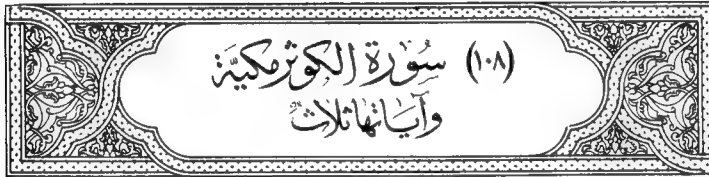 (١٠٨) سُورَة الكوثر مكيَّة
وَآيَاتهَا ثلاثٌ